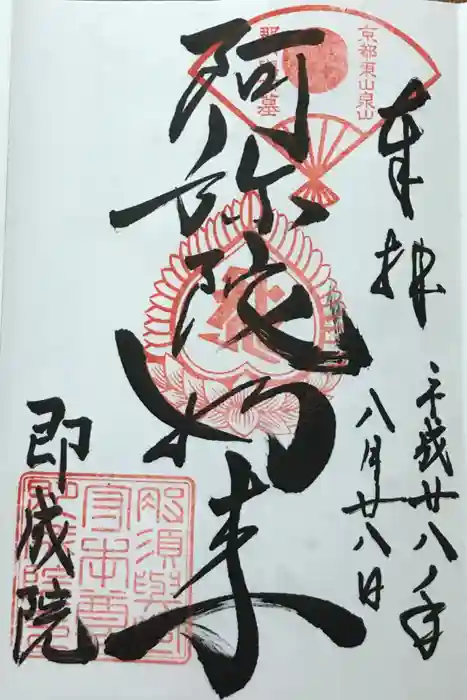 京都東山泉山
奉拝
平成廿八ノ年
八月廿八日
阿弥陀如来
即成院
那須與
守本尊
即成院